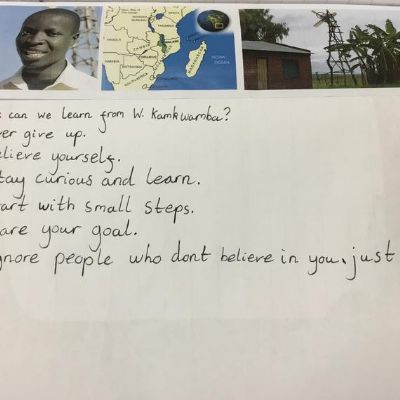 can we learn from W. Kamkwamba?
er give up.
elieve yourself.
tay curious and learn.
art with small steps.
are your goal.
gnore people who dont believe in you, just